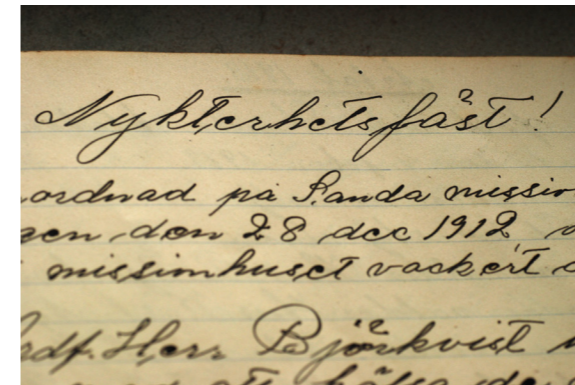 Nykterhetsfäst!
ordnad på Sanda mission
gen den 28 dec 1912
missionhuset vackert
ordf. Herr Björkvist
att hälsa de